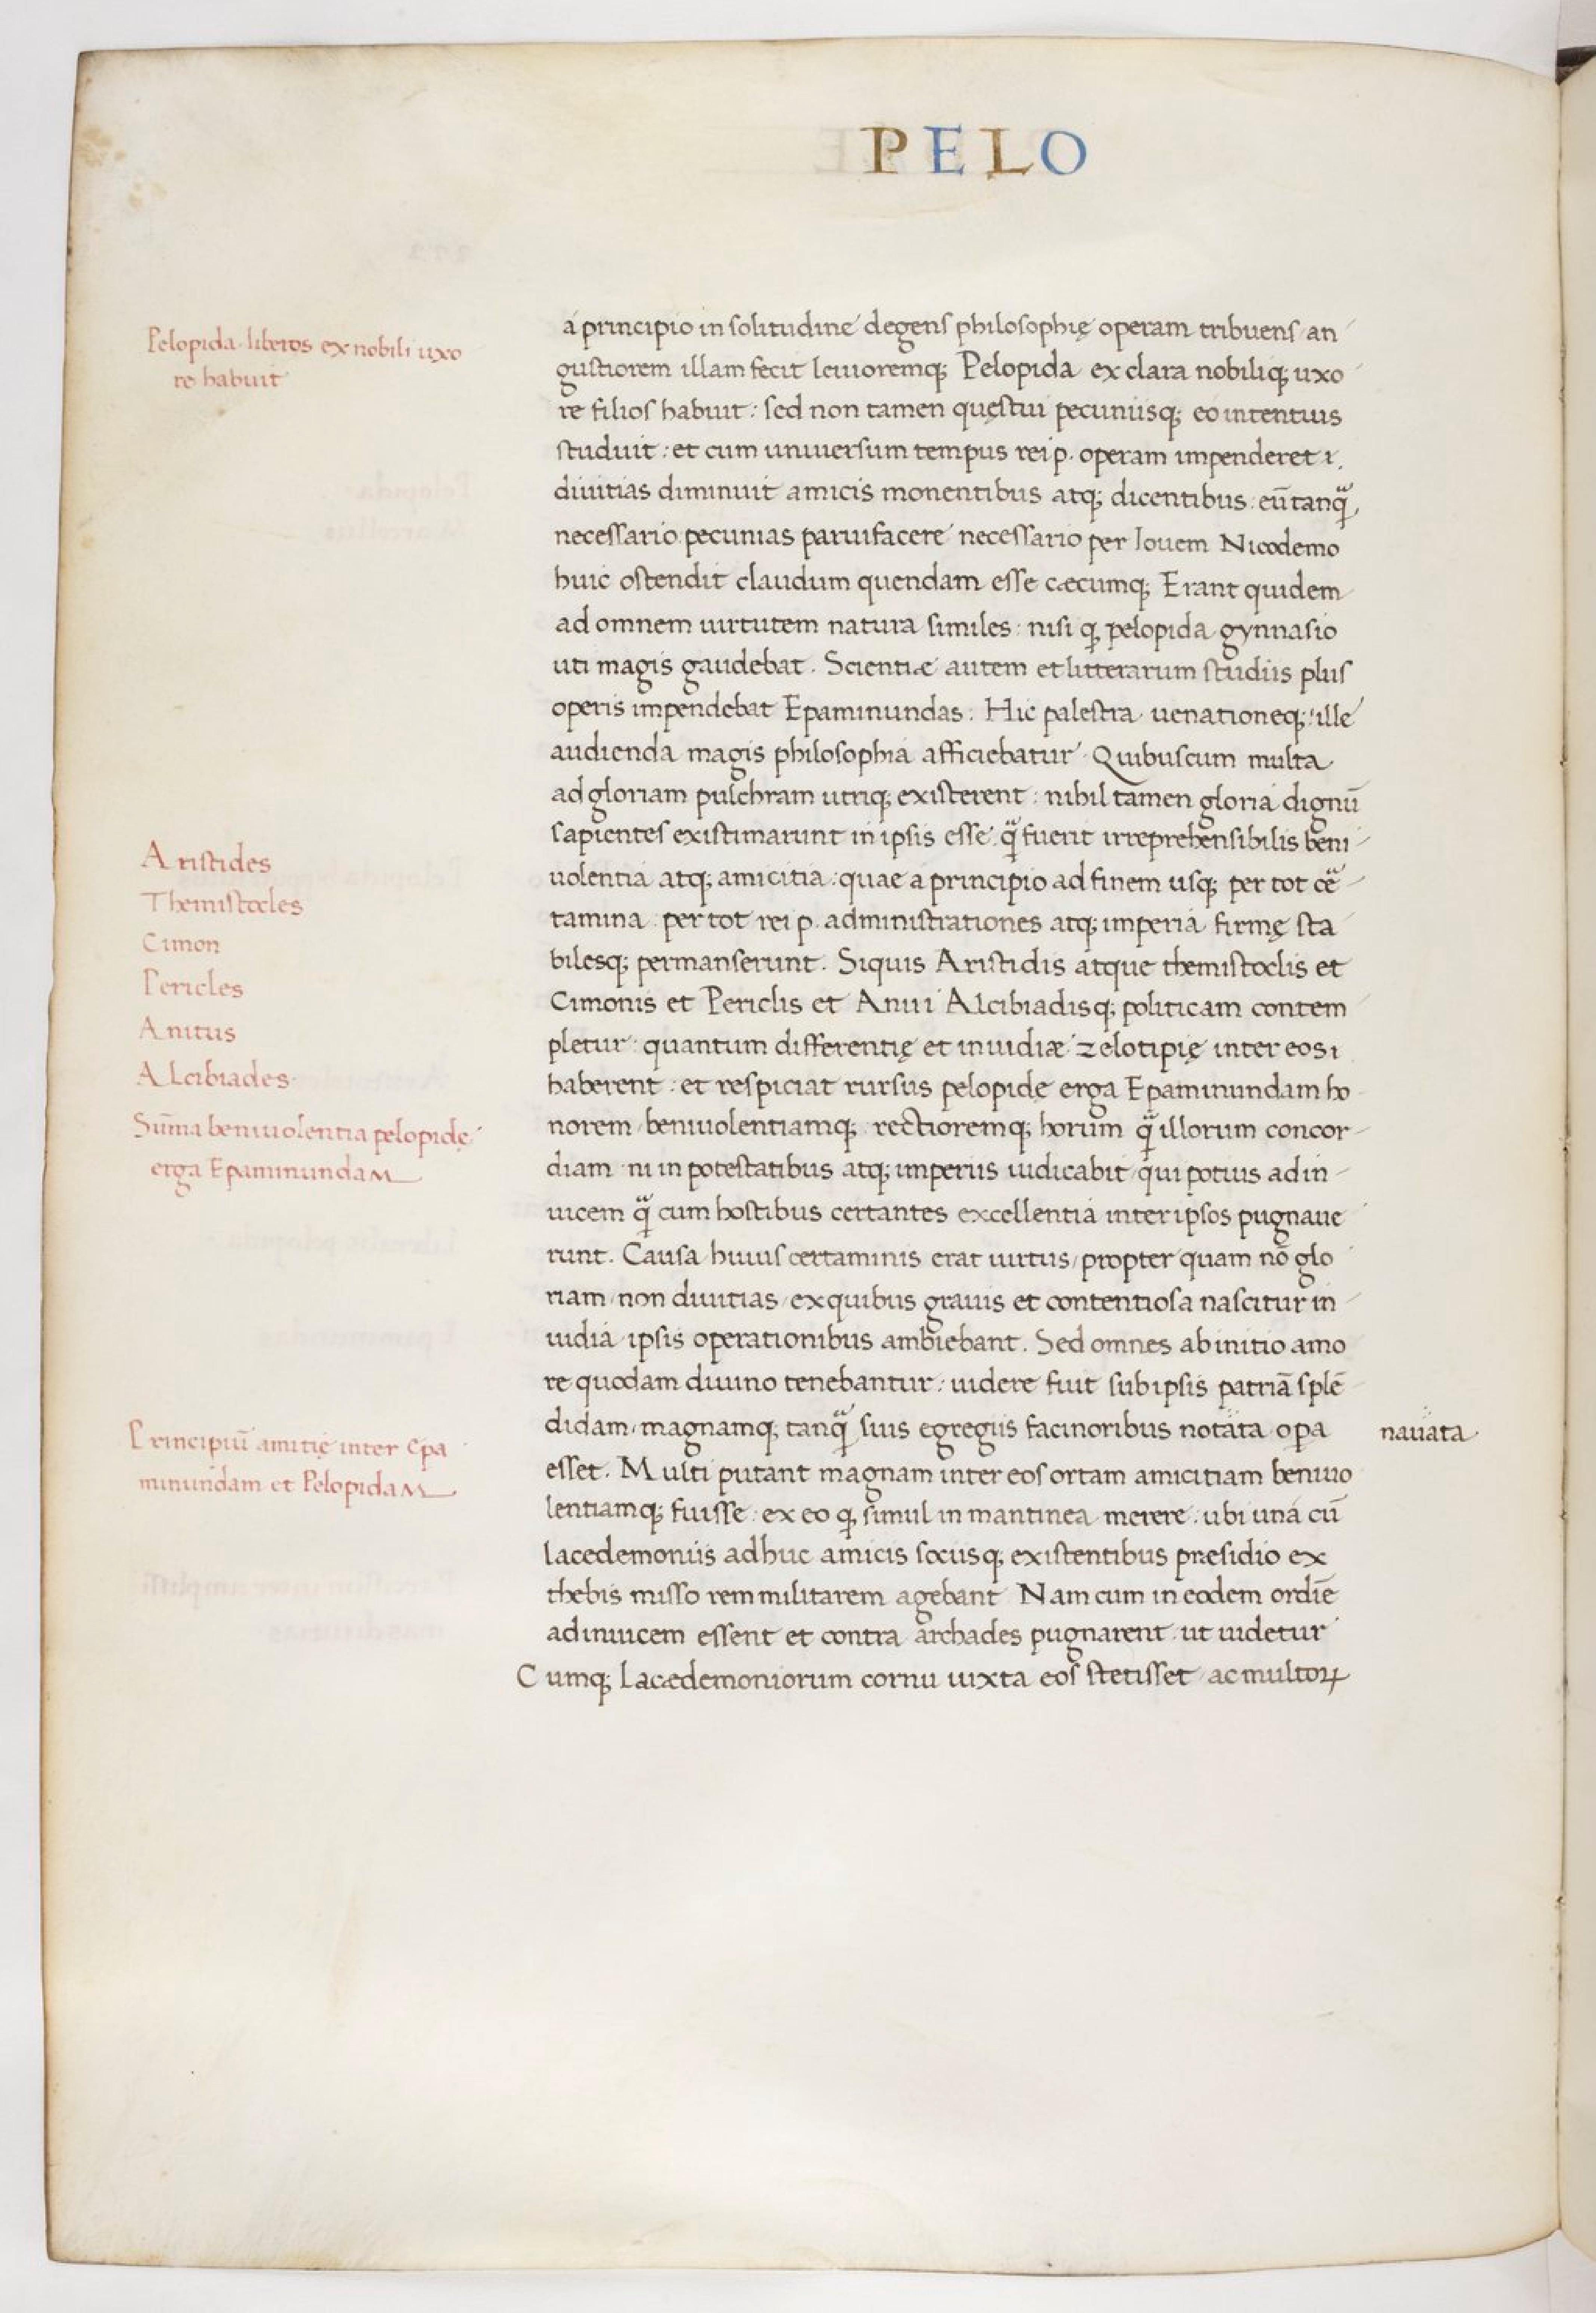 PELO
Pelopida liberos ex nobili uxo
re habuit
a principio in solitudine degens philosophię operam tribuens an
gustiorem illam fecit leuioremq; Pelopida ex clara nobiliq; uxo
re filios habuit: sed non tamen quęstui pecuniisq; eo intentius
studuit: et cum uniuersum tempus rei p. operam impenderet
diuitias diminuit amicis monentibus atq; dicentibus eū tanq̃
necessario pecunias paruifacere necessario per Iouem Nicodemo
huic ostendit claudum quendam esse cæcumq; Erant quidem
ad omnem uirtutem natura similes: nisi q̱ pelopida gynnasio
uti magis gaudebat. Scientiæ autem et litterarum studiis plus
operis impendebat Epaminundas. Hic palestra uenationeq; ille
audienda magis philosophia afficiebatur. Quibuscum multa
ad gloriam pulchram utriq; existerent: nihil tamen gloria dignū
sapientes existimarunt in ipsis esse q̃ fuerit irreprehensibilis beni
uolentia atq; amicitia: quae a principio ad finem usq; per tot cē
tamina per tot rei p. administrationes atq; imperia firmę sta
bilesq; permanserunt. Siquis Aristidis atque themistoclis et
Cimonis et Periclis et Aniti Alcibiadisq; politicam contem
pletur: quantum differentię et inuidiæ zelotipię inter eos
haberent: et respiciat rursus pelopidę erga Epaminundam ho
norem beniuolentiamq; rectioremq; horum q̃ illorum concor
diam ni in potestatibus atq; imperiis iudicabit qui potius ad in
uicem q̃ cum hostibus certantes excellentia inter ipsos pugnaue
runt. Causa huius certaminis erat uirtus, propter quam nō glo
riam non diuitias ex quibus grauis et contentiosa nascitur in
uidia ipsis operationibus ambiebant. Sed omnes ab initio amo
re quodam diuino tenebantur: uidere fuit sub ipsis patriā splē
didam, magnamq; tanq̃ suis egregiis facinoribus notata opa
esset. Multi putant magnam inter eos ortam amicitiam beniuo
lentiamq; fuisse: ex eo q̱ simul in mantinea merere: ubi una cū
lacedemoniis adhuc amicis sociisq; existentibus præsidio ex
thebis misso rem militarem agebant Nam cum in eodem ordīe
ad inuicem essent et contra archades pugnarent ut uidetur
Cumq; Lacædemoniorum cornu iuxta eos stetisset ac multoꝝ
Aristides
Themistocles
Cimon
Pericles
Anitus
Alcibiades
Sūma beniuolentia pelopidę
erga Epaminundam
Principiū amitię inter Epa
minundam et Pelopidam
nauata